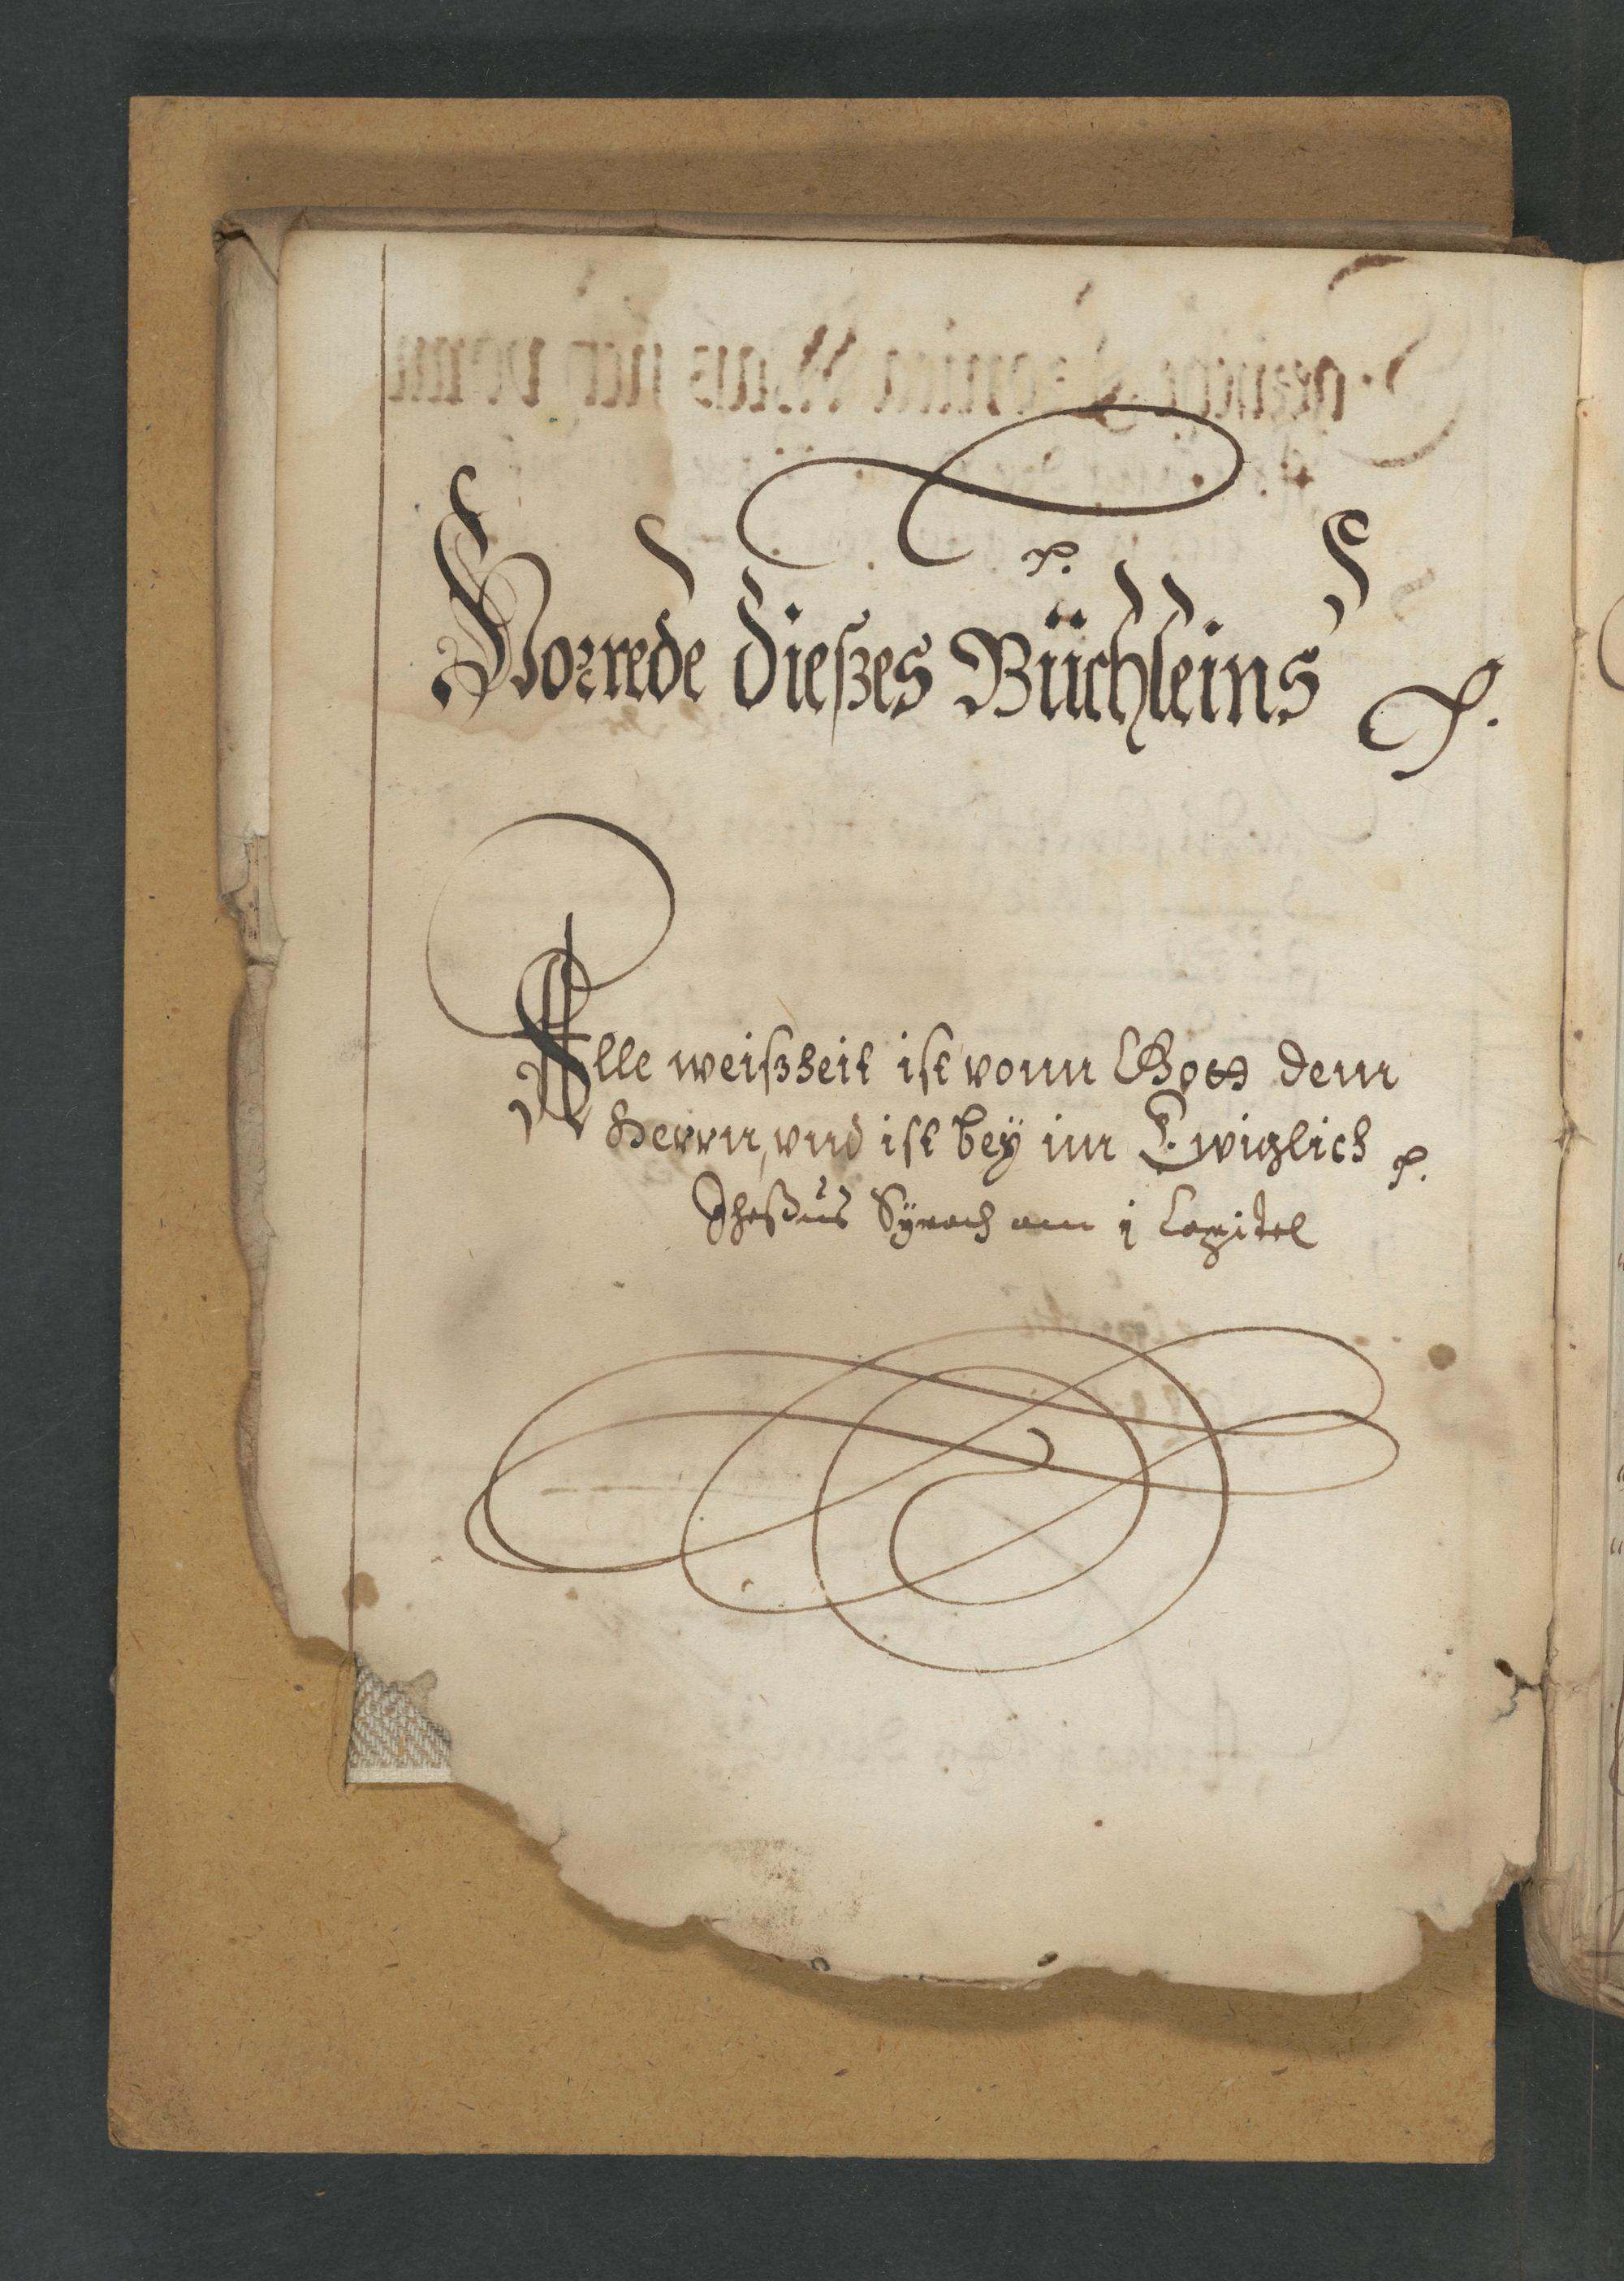 Vorrede dießes Büchleins
Alle weißheit ist vonn Gott denn
Herrn, vnd ist bey im Ewiglich
Jheßus Syrach am j Capitel